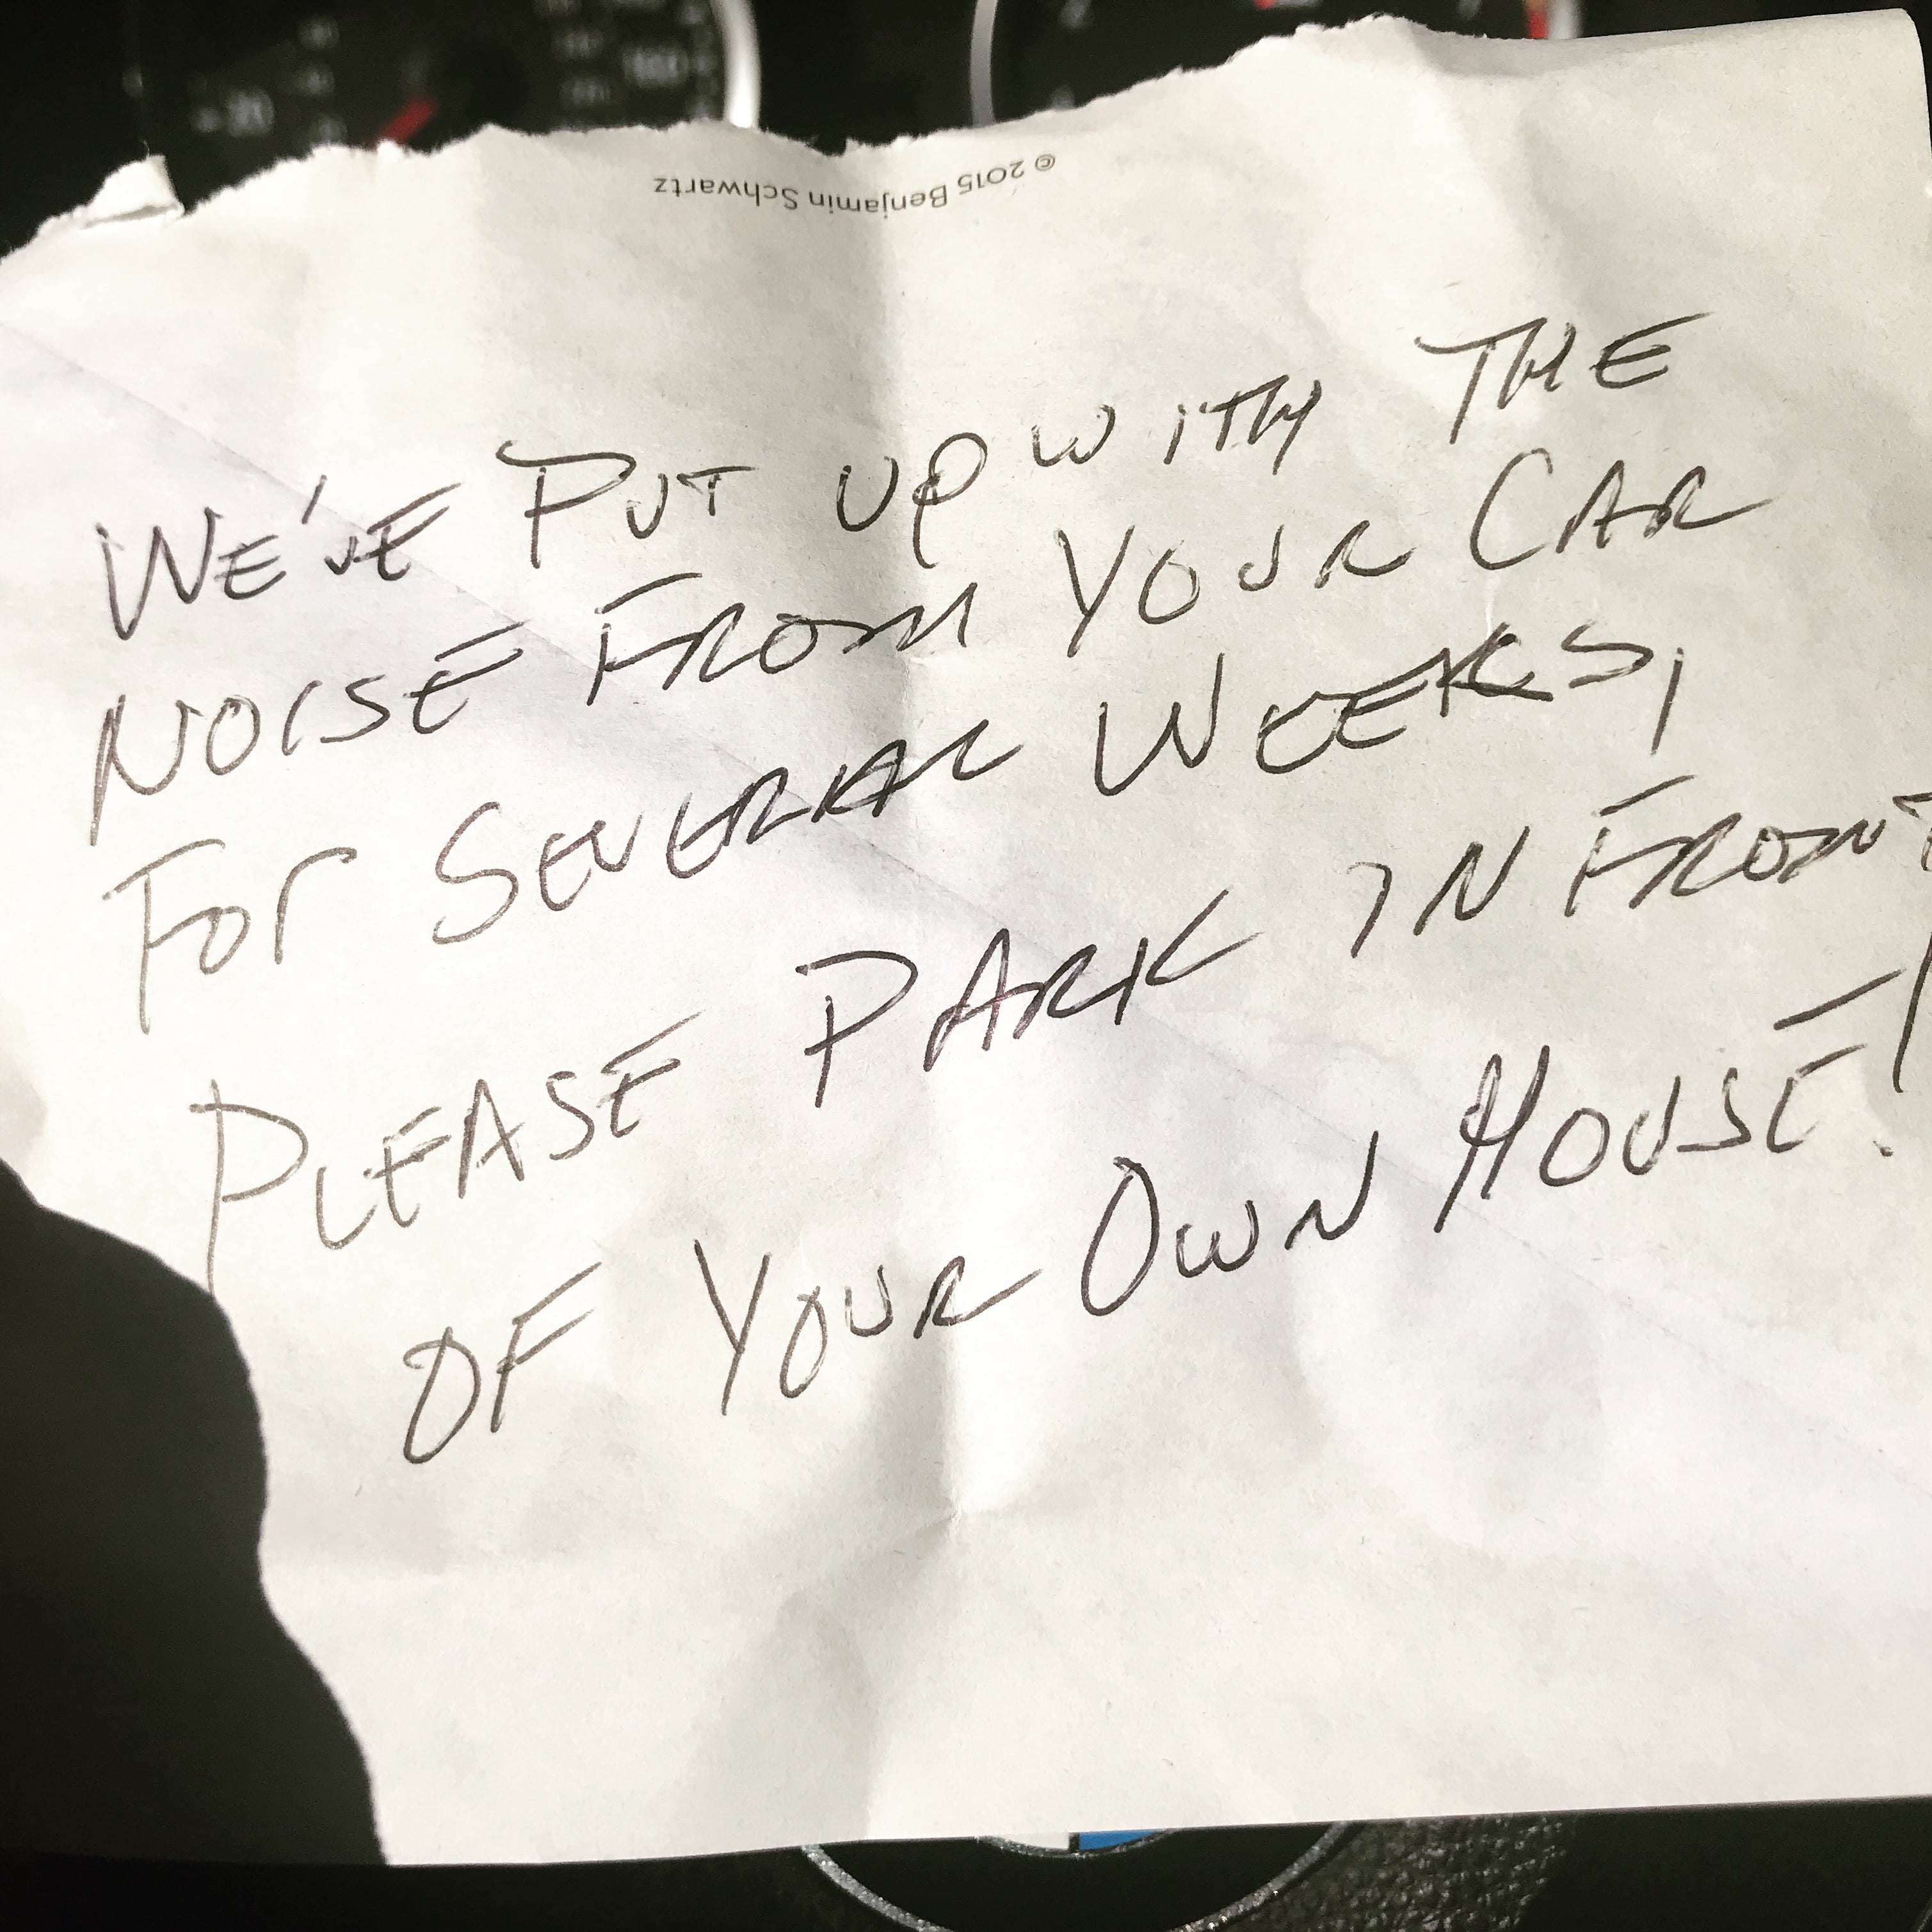 © 2015 Benjamin Schwartz
WE'VE PUT UP WITH THE
NOISE FROM YOUR CAR
FOR SEVERAL WEEKS,
PLEASE PARK IN FRONT
OF YOUR OWN HOUSE!